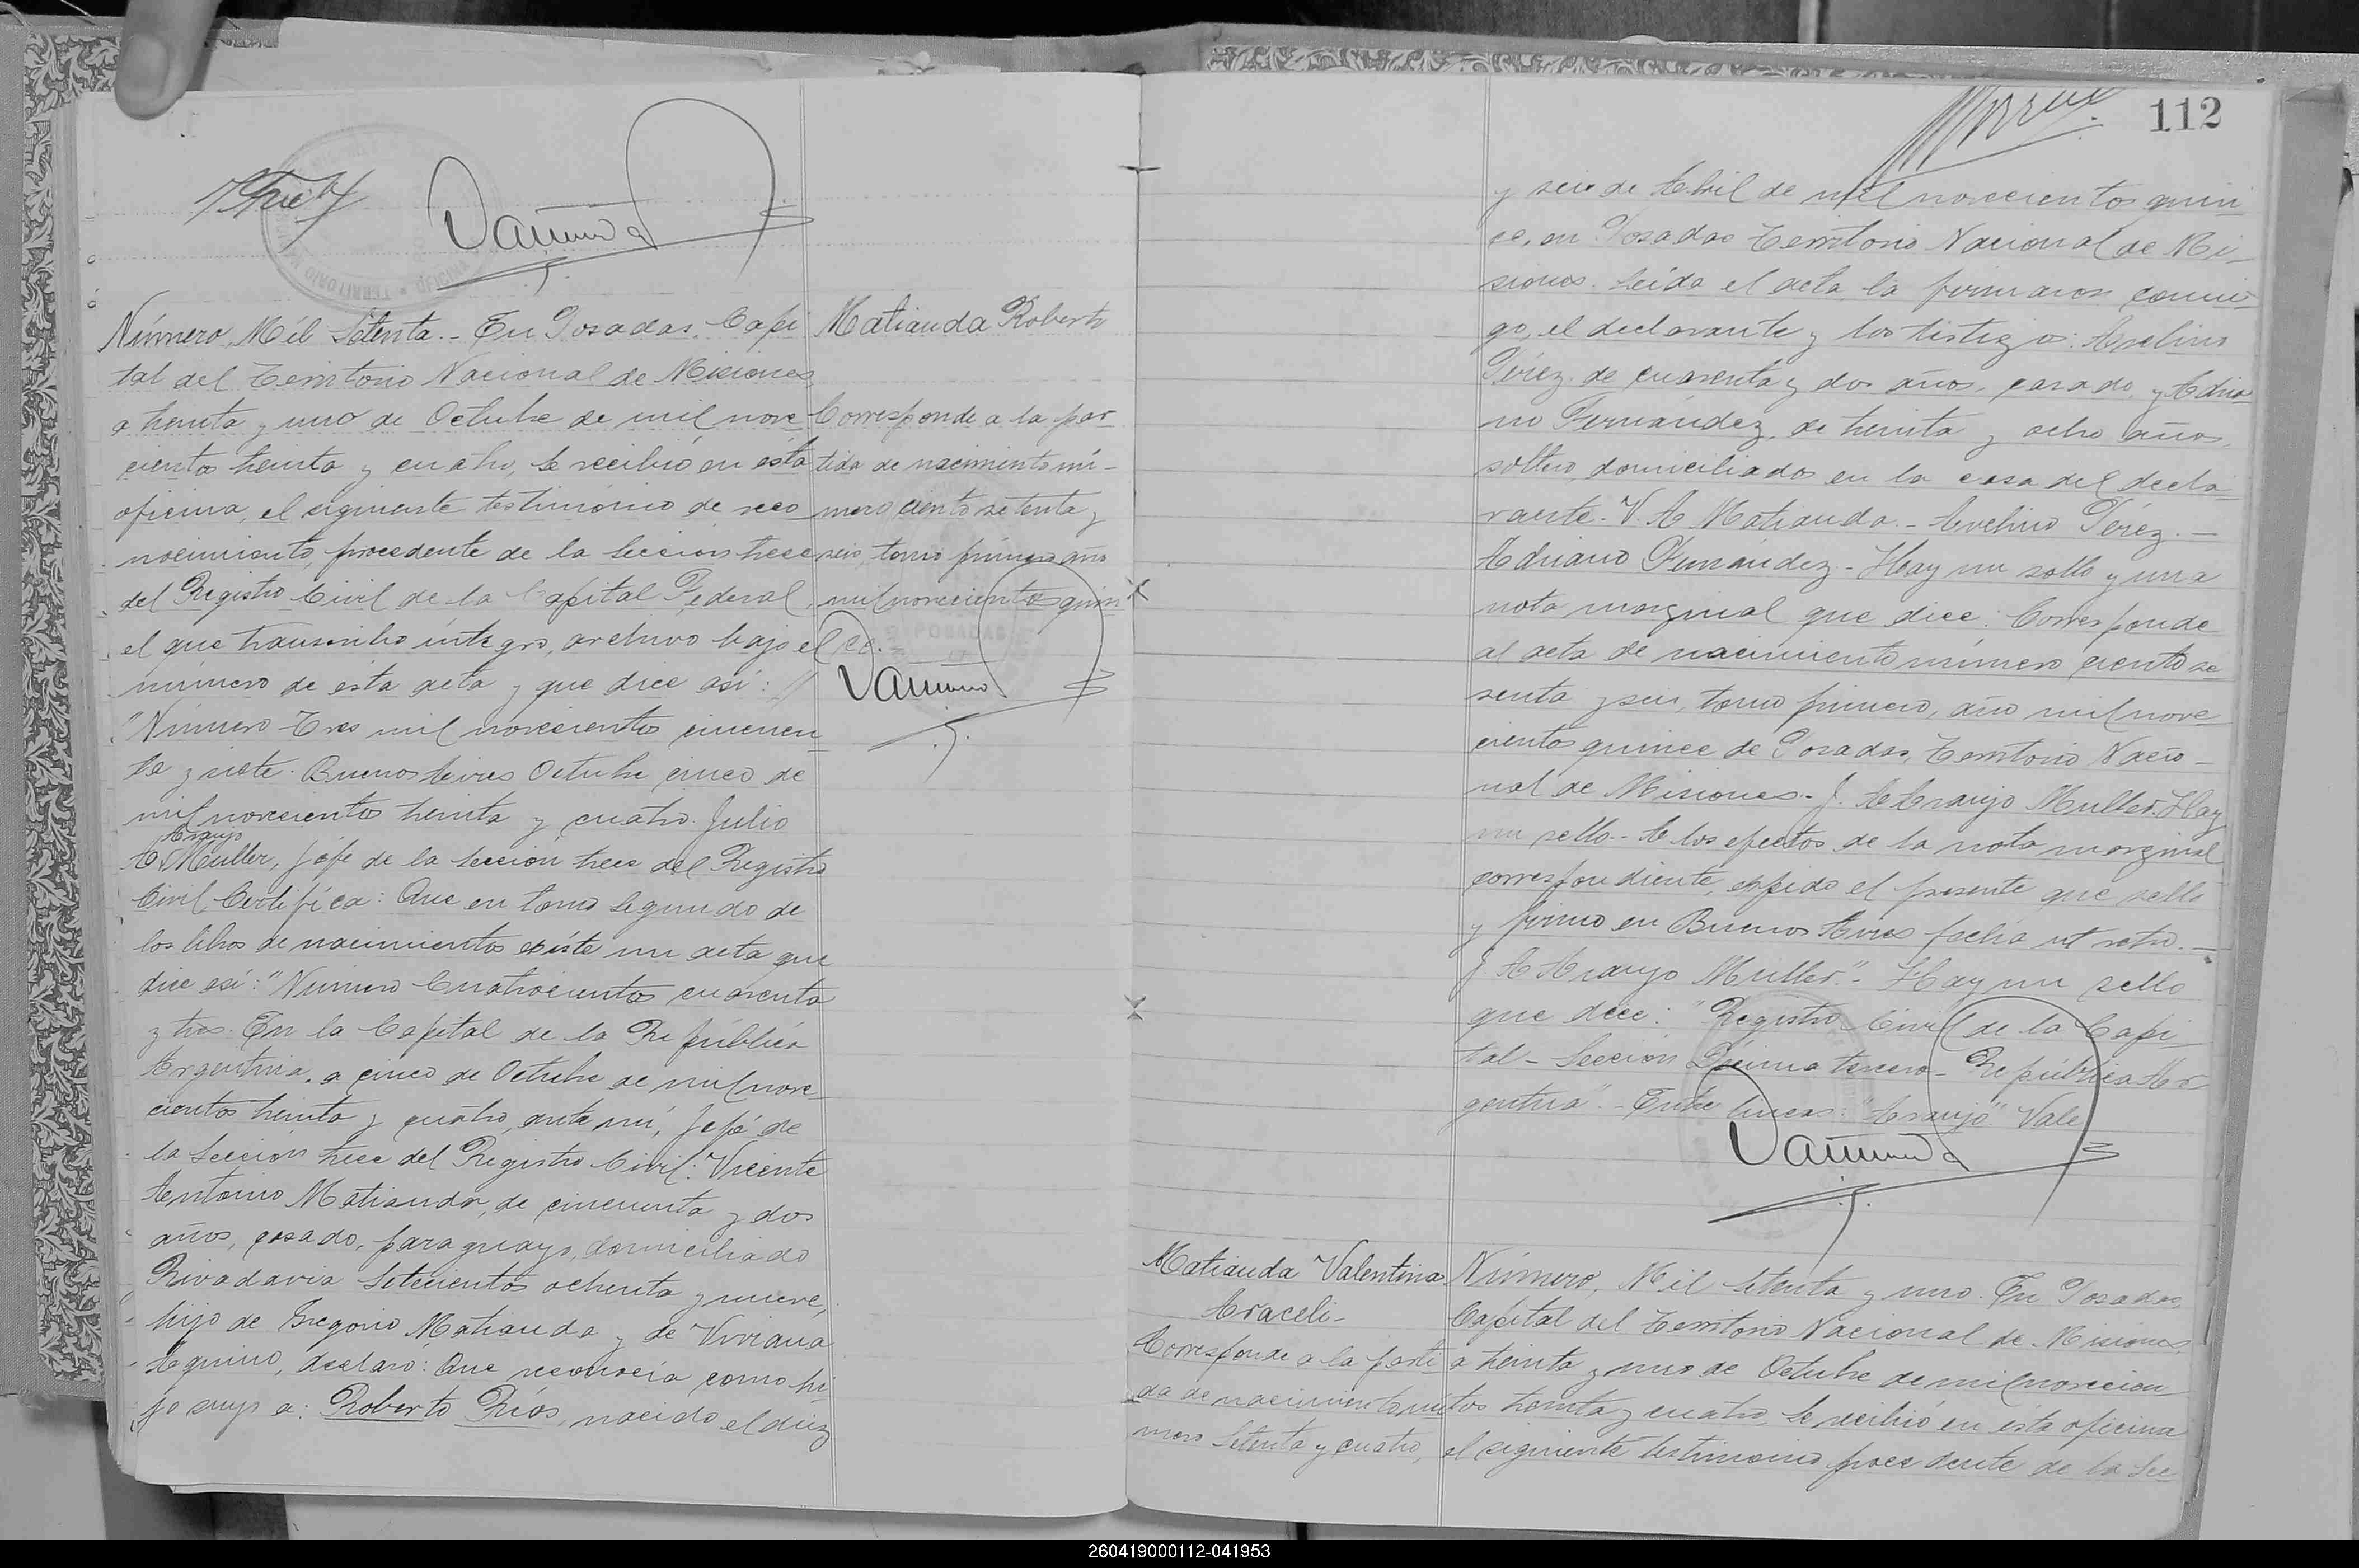 Número, Mil Setenta.- En Posadas, Capi
tal del Territorio Nacional de Misiones
a treinta y uno de Octubre de mil nove
cientos treinta y cuatro, se recibió en esta
oficina, el siguiente testimonio de reco
nocimiento, procedente de la Sección trece
del Registro Civil de la Capital Federal,
el que transcribo íntegro, archivo bajo el
número de esta acta y que dice así:
"Número Tres mil novecientos cincuen
ta y siete. Buenos Aires Octubre cinco de
mil novecientos treinta y cuatro. Julio
Araujo
A. Muller, Jefe de la Sección trece del Registro
Civil Certifica: Que en tomo Segundo de
los libros de nacimientos existe un acta que
dice así: "Número Cuatrocientos cuarenta
y tres. En la Capital de la República
Argentina, a cinco de Octubre de mil nove
cientos treinta y cuatro, ante mí, Jefe de
la Sección trece del Registro Civil: Vicente
Antonio Matiauda, de cincuenta y dos
años, casado, paraguayo, domiciliado
Rivadavia Setecientos ochenta y nueve,
hijo de Gregorio Matiauda y de Viviana
Aquino, declaró: Que reconocía como hi
jo suyo a: Roberto Ríos, nacido el diez
Matiauda Roberto
Corresponde a la par
tida de nacimiento nú-
mero ciento setenta y
seis, tomo primero año
mil novecientos quin
ce.-
POSADAS
112
y seis de Abril de mil novecientos quin
ce, en Posadas Territorio Nacional de Mi-
siones. Leída el acta la firmaron conmi
go, el declarante y los testigos: Avelino
Pérez, de cuarenta y dos años, casado, y Adria
no Fernández, de treinta y ocho años,
soltero, domiciliados en la casa del decla
rante. V. A Matiauda.- Avelino Pérez.-
Adriano Fernández.- Hay un sello y una
nota marginal que dice: Corresponde
al acta de nacimiento número ciento se
senta y seis, tomo primero, año mil nove
cientos quince de Posadas, Territorio Nacio-
nal de Misiones.- J. A Araujo Muller. Hay
un sello.- A los efectos de la nota marginal
correspondiente, expido el presente que sello
y firmo en Buenos Aires fecha ut retro.-
J. A Araujo Muller."- Hay un sello
que dice: "Registro Civil de la Capi
tal- Sección Décima tercera- República Ar
gentina".- Entre líneas: "Araujo". Vale
Matiauda Valentina
Araceli-
Corresponde a la parti
da de nacimiento nú
mero Setenta y cuatro,
Número, Mil Setenta y uno. En Posadas,
Capital del Territorio Nacional de Misiones,
a treinta y uno de Octubre de mil novecien
tos treinta y cuatro, se recibió en esta oficina
el siguiente testimonio procedente de la Sec
260419000112-041953